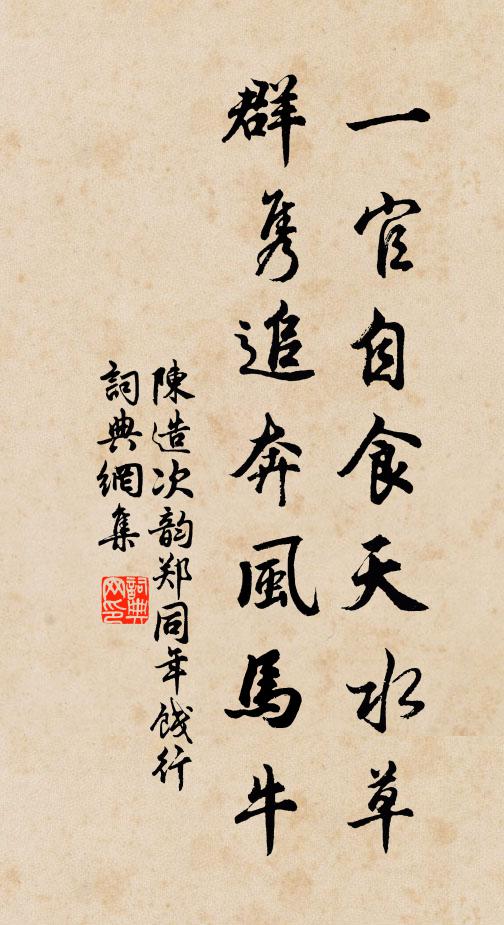 一官自食天水草
群隽追奔風馬牛
陳造次韵郑同年餞行
詞典網集
詞典网印